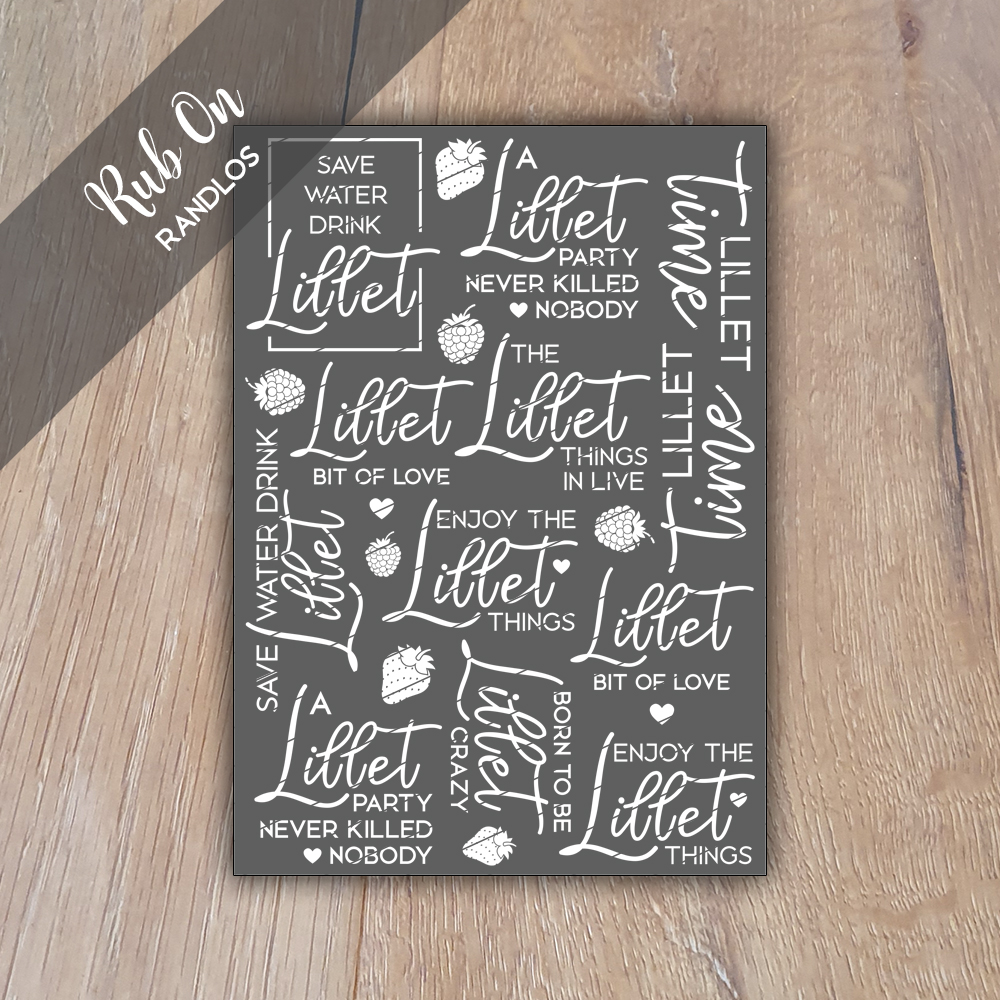 Rub On
RANDLOS
SAVE
WATER
DRINK
Lillet
A
Lillet
PARTY
NEVER KILLED
NOBODY
LILLET
Time
LILLET
Time
Lillet
BIT OF LOVE
THE
Lillet
THINGS
IN LIVE
SAVE WATER DRINK
Lillet
ENJOY THE
Lillet
THINGS
Lillet
BIT OF LOVE
A
Lillet
PARTY
NEVER KILLED
NOBODY
BORN TO BE
Lillet
CRAZY
ENJOY THE
Lillet
THINGS